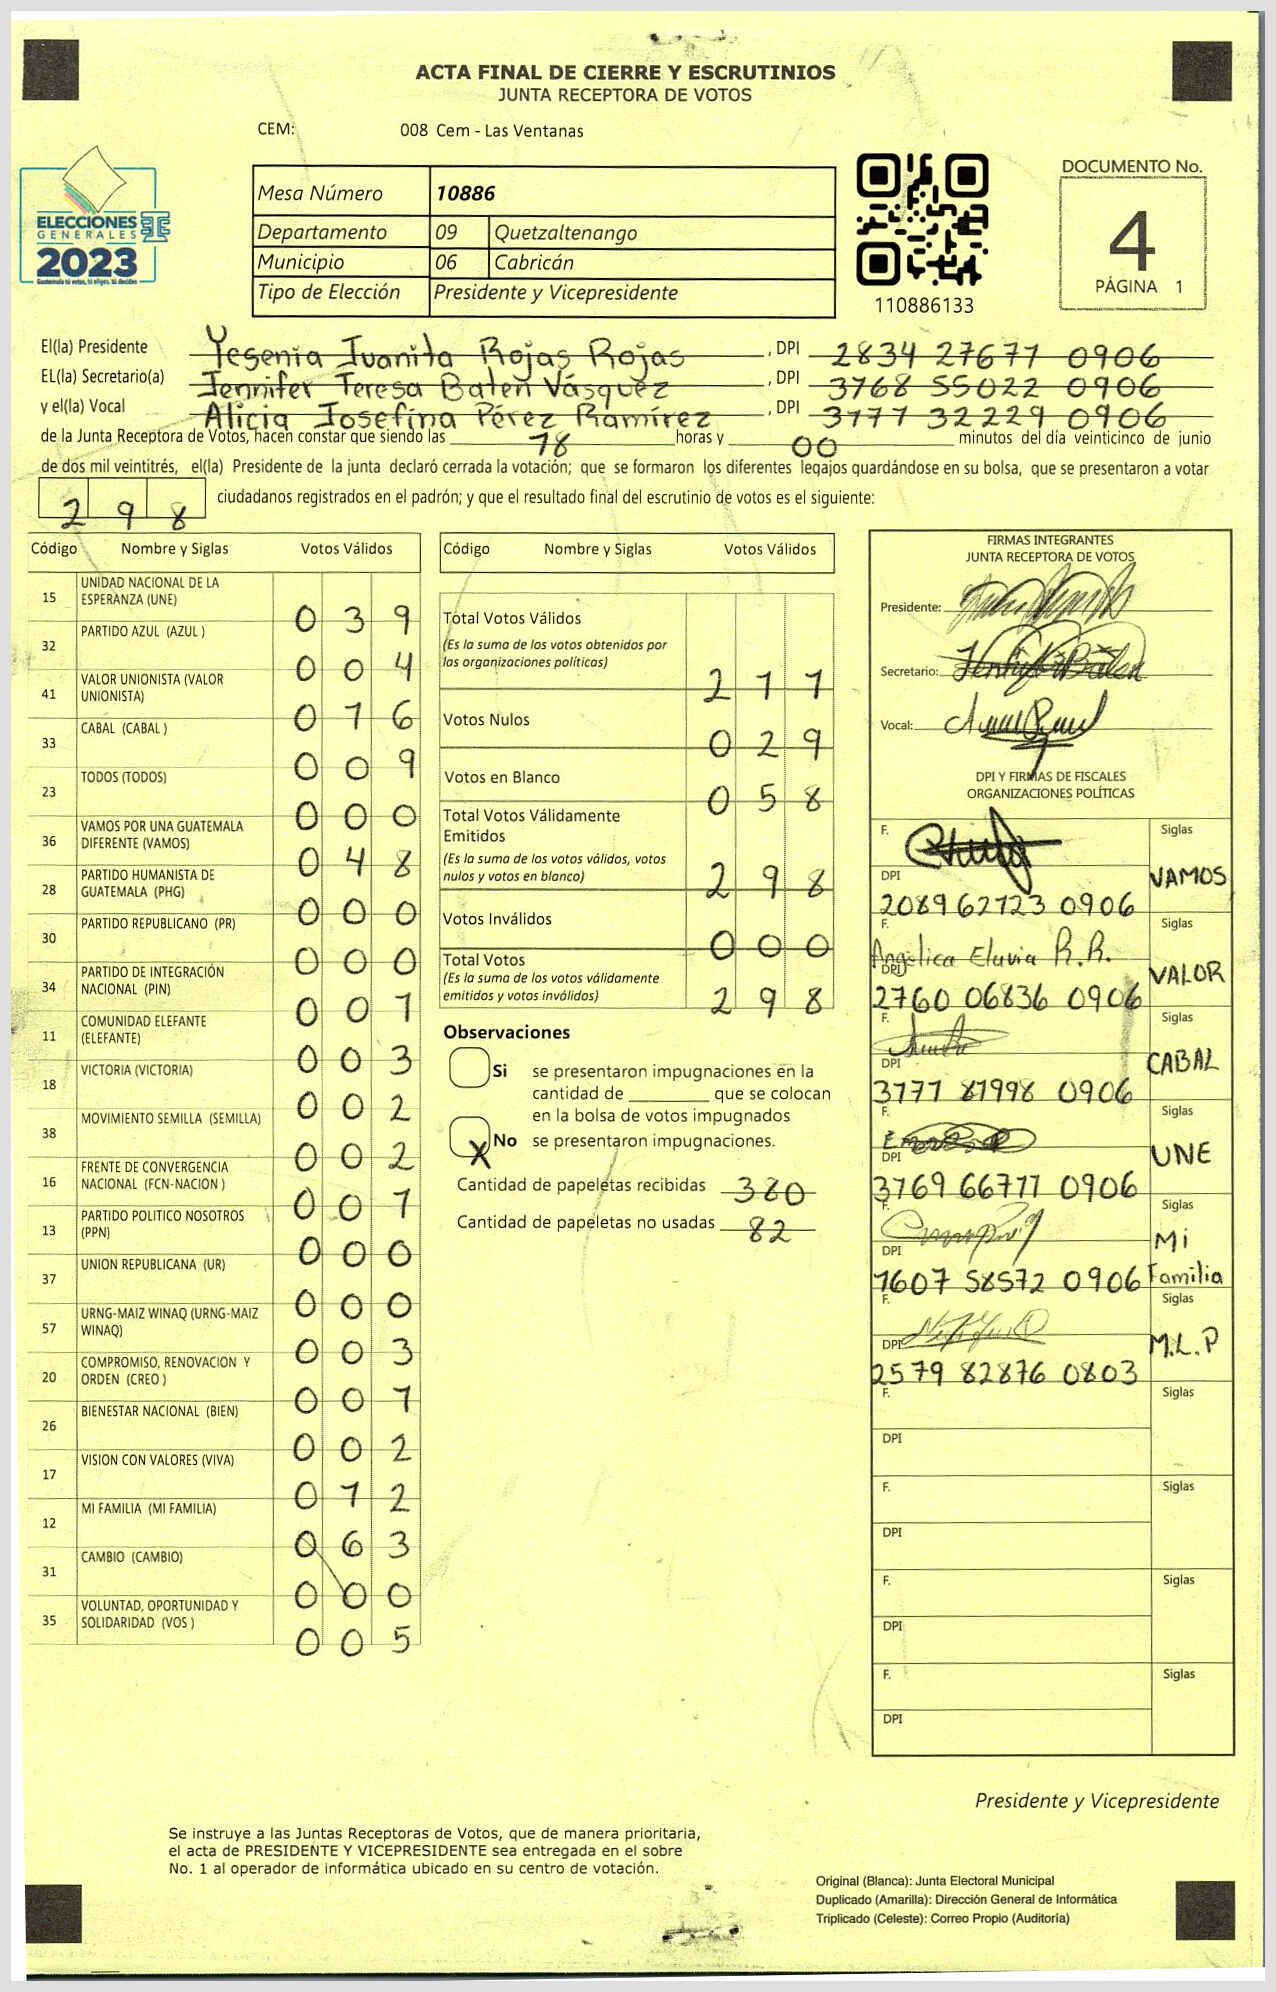 ACTA FINAL DE CIERRE Y ESCRUTINIOS
JUNTA RECEPTORA DE VOTOS
CEM: 008 Cem - Las Ventanas
ELECCIONES
GENERALES
2023
Guatemala tú votas, tú eliges, tú decides
Mesa Número 10886
Departamento 09 Quetzaltenango
Municipio 06 Cabricán
Tipo de Elección Presidente y Vicepresidente
110886133
DOCUMENTO No.
4
PÁGINA 1
El(la) Presidente Yesenia Juanita Rojas Rojas , DPI 2834 27677 0906
EL(la) Secretario(a) Jennifer Teresa Baten Vásquez , DPI 3768 55022 0906
y el(la) Vocal Alicia Josefina Pérez Ramírez , DPI 3777 32229 0906
de la Junta Receptora de Votos, hacen constar que siendo las 18 horas y 00 minutos del día veinticinco de junio
de dos mil veintitrés, el(la) Presidente de la junta declaró cerrada la votación; que se formaron los diferentes legajos guardándose en su bolsa, que se presentaron a votar
298 ciudadanos registrados en el padrón; y que el resultado final del escrutinio de votos es el siguiente:
Código Nombre y Siglas Votos Válidos
15 UNIDAD NACIONAL DE LA ESPERANZA (UNE) 0 3 9
32 PARTIDO AZUL (AZUL ) 0 0 4
41 VALOR UNIONISTA (VALOR UNIONISTA) 0 1 6
33 CABAL (CABAL ) 0 0 9
23 TODOS (TODOS) 0 0 0
36 VAMOS POR UNA GUATEMALA DIFERENTE (VAMOS) 0 4 8
28 PARTIDO HUMANISTA DE GUATEMALA (PHG) 0 0 0
30 PARTIDO REPUBLICANO (PR) 0 0 0
34 PARTIDO DE INTEGRACIÓN NACIONAL (PIN) 0 0 1
11 COMUNIDAD ELEFANTE (ELEFANTE) 0 0 3
18 VICTORIA (VICTORIA) 0 0 2
38 MOVIMIENTO SEMILLA (SEMILLA) 0 0 2
16 FRENTE DE CONVERGENCIA NACIONAL (FCN-NACION ) 0 0 1
13 PARTIDO POLITICO NOSOTROS (PPN) 0 0 0
37 UNION REPUBLICANA (UR) 0 0 0
57 URNG-MAIZ WINAQ (URNG-MAIZ WINAQ) 0 0 3
20 COMPROMISO, RENOVACION Y ORDEN (CREO ) 0 0 1
26 BIENESTAR NACIONAL (BIEN) 0 0 2
17 VISION CON VALORES (VIVA) 0 1 2
12 MI FAMILIA (MI FAMILIA) 0 6 3
31 CAMBIO (CAMBIO) 0 0 0
35 VOLUNTAD, OPORTUNIDAD Y SOLIDARIDAD (VOS ) 0 0 5
Código Nombre y Siglas Votos Válidos
Total Votos Válidos
(Es la suma de los votos obtenidos por
las organizaciones políticas) 2 1 1
Votos Nulos 0 2 9
Votos en Blanco 0 5 8
Total Votos Válidamente
Emitidos
(Es la suma de los votos válidos, votos
nulos y votos en blanco) 2 9 8
Votos Inválidos 0 0 0
Total Votos
(Es la suma de los votos válidamente
emitidos y votos inválidos) 2 9 8
Observaciones
Si se presentaron impugnaciones en la
cantidad de ________ que se colocan
en la bolsa de votos impugnados
X No se presentaron impugnaciones.
Cantidad de papeletas recibidas 380
Cantidad de papeletas no usadas 82
FIRMAS INTEGRANTES
JUNTA RECEPTORA DE VOTOS
Presidente:
Secretario:
Vocal:
DPI Y FIRMAS DE FISCALES
ORGANIZACIONES POLÍTICAS
F. Siglas
DPI VAMOS
2089 62723 0906
F. Siglas
Angélica Eluvia R.R.
DPI VALOR
2760 06836 0906
F. Siglas
DPI CABAL
3777 81998 0906
F. Siglas
DPI UNE
3769 66777 0906
F. Siglas
DPI Mi
1607 58572 0906 Familia
F. Siglas
DPI M.L.P
2579 82876 0803
F. Siglas
DPI
F. Siglas
DPI
F. Siglas
DPI
F. Siglas
DPI
Presidente y Vicepresidente
Se instruye a las Juntas Receptoras de Votos, que de manera prioritaria,
el acta de PRESIDENTE Y VICEPRESIDENTE sea entregada en el sobre
No. 1 al operador de informática ubicado en su centro de votación.
Original (Blanca): Junta Electoral Municipal
Duplicado (Amarilla): Dirección General de Informática
Triplicado (Celeste): Correo Propio (Auditoría)